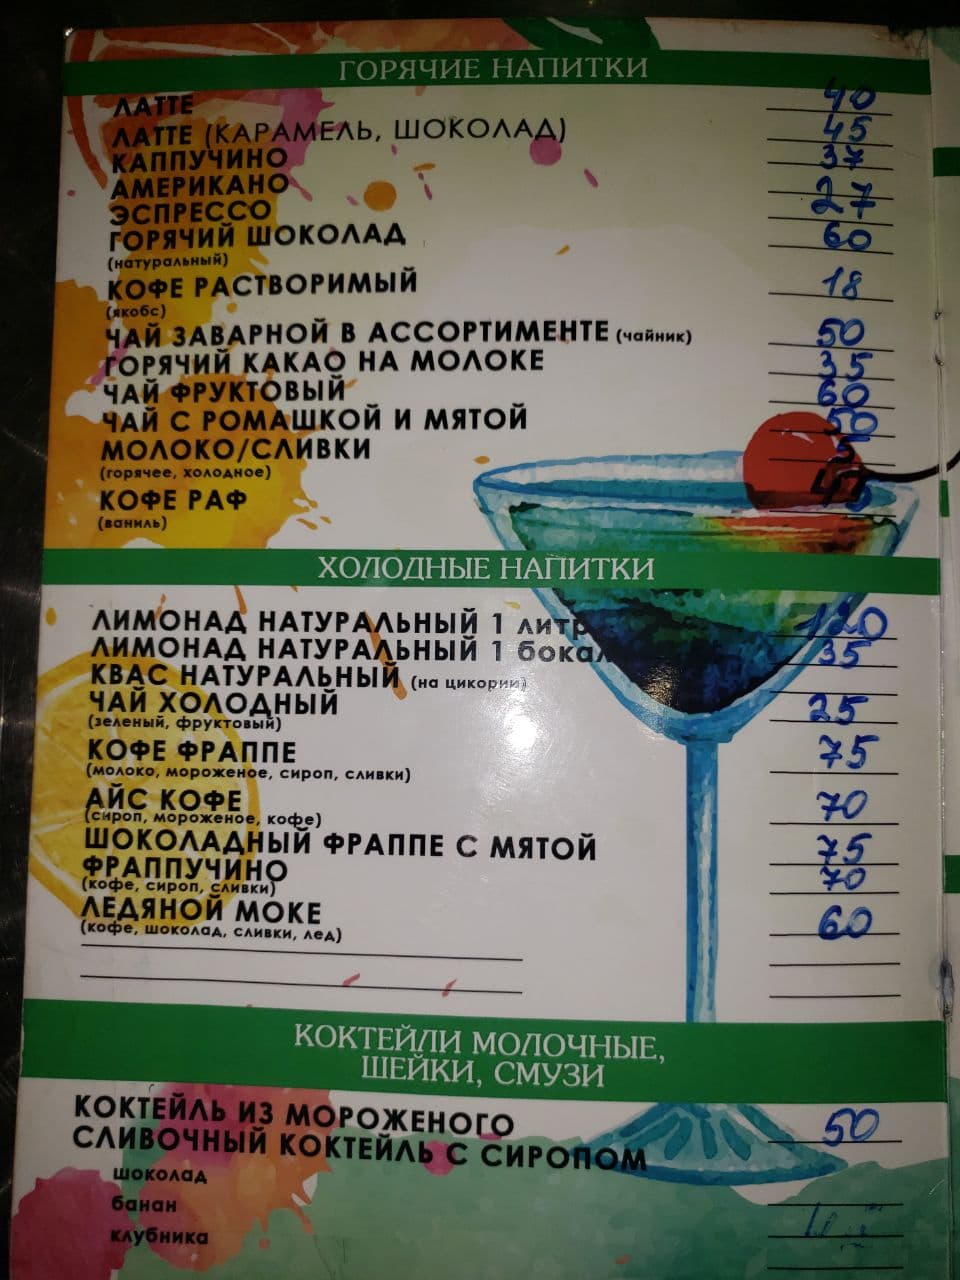 ГОРЯЧИЕ НАПИТКИ
ЛАТТЕ 40
ЛАТТЕ (КАРАМЕЛЬ, ШОКОЛАД) 45
КАППУЧИНО 37
АМЕРИКАНО
ЭСПРЕССО 27
ГОРЯЧИЙ ШОКОЛАД 60
(натуральный)
КОФЕ РАСТВОРИМЫЙ 18
(якобс)
ЧАЙ ЗАВАРНОЙ В АССОРТИМЕНТЕ (чайник) 50
ГОРЯЧИЙ КАКАО НА МОЛОКЕ 35
ЧАЙ ФРУКТОВЫЙ 60
ЧАЙ С РОМАШКОЙ И МЯТОЙ 50
МОЛОКО/СЛИВКИ 5
(горячее, холодное)
КОФЕ РАФ
(ваниль)
ХОЛОДНЫЕ НАПИТКИ
ЛИМОНАД НАТУРАЛЬНЫЙ 1 литр 120
ЛИМОНАД НАТУРАЛЬНЫЙ 1 бокал 35
КВАС НАТУРАЛЬНЫЙ (на цикории)
ЧАЙ ХОЛОДНЫЙ 25
(зеленый, фруктовый)
КОФЕ ФРАППЕ 75
(молоко, мороженое, сироп, сливки)
АЙС КОФЕ 70
(сироп, мороженое, кофе)
ШОКОЛАДНЫЙ ФРАППЕ С МЯТОЙ 75
ФРАППУЧИНО 70
(кофе, сироп, сливки)
ЛЕДЯНОЙ МОКЕ 60
(кофе, шоколад, сливки, лед)
КОКТЕЙЛИ МОЛОЧНЫЕ,
ШЕЙКИ, СМУЗИ
КОКТЕЙЛЬ ИЗ МОРОЖЕНОГО 50
СЛИВОЧНЫЙ КОКТЕЙЛЬ С СИРОПОМ
шоколад
банан
клубника